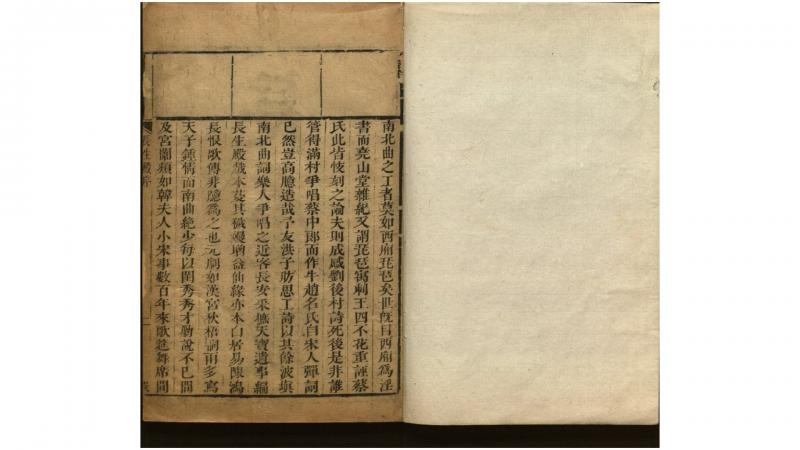 南北曲之工者莫如西廂琵琶矣世旣目西廂爲淫
書而堯山堂雜紀又謂琵琶寓刺王四不花重誣蔡
氏此皆忮刻之論夫則成感劉後村詩死後是非誰
管得滿村爭唱蔡中郎而作牛趙名氏自宋人彈詞
已然豈高臆造哉予友洪子昉思工詩以其餘波塡
南北曲詞樂人爭唱之近客長安采摭天寶遺事編
長生殿戲本芟其穢嫚增益仙緣亦本白居易陳鴻
長恨歌傳非臆爲之也元劇如漢宮秋梧桐雨多寫
天子鍾情而南曲絶少每以閨秀秀才勦說不已間
及宮闈類如韓夫人小宋事數百年來歌筵舞席間
長生殿序